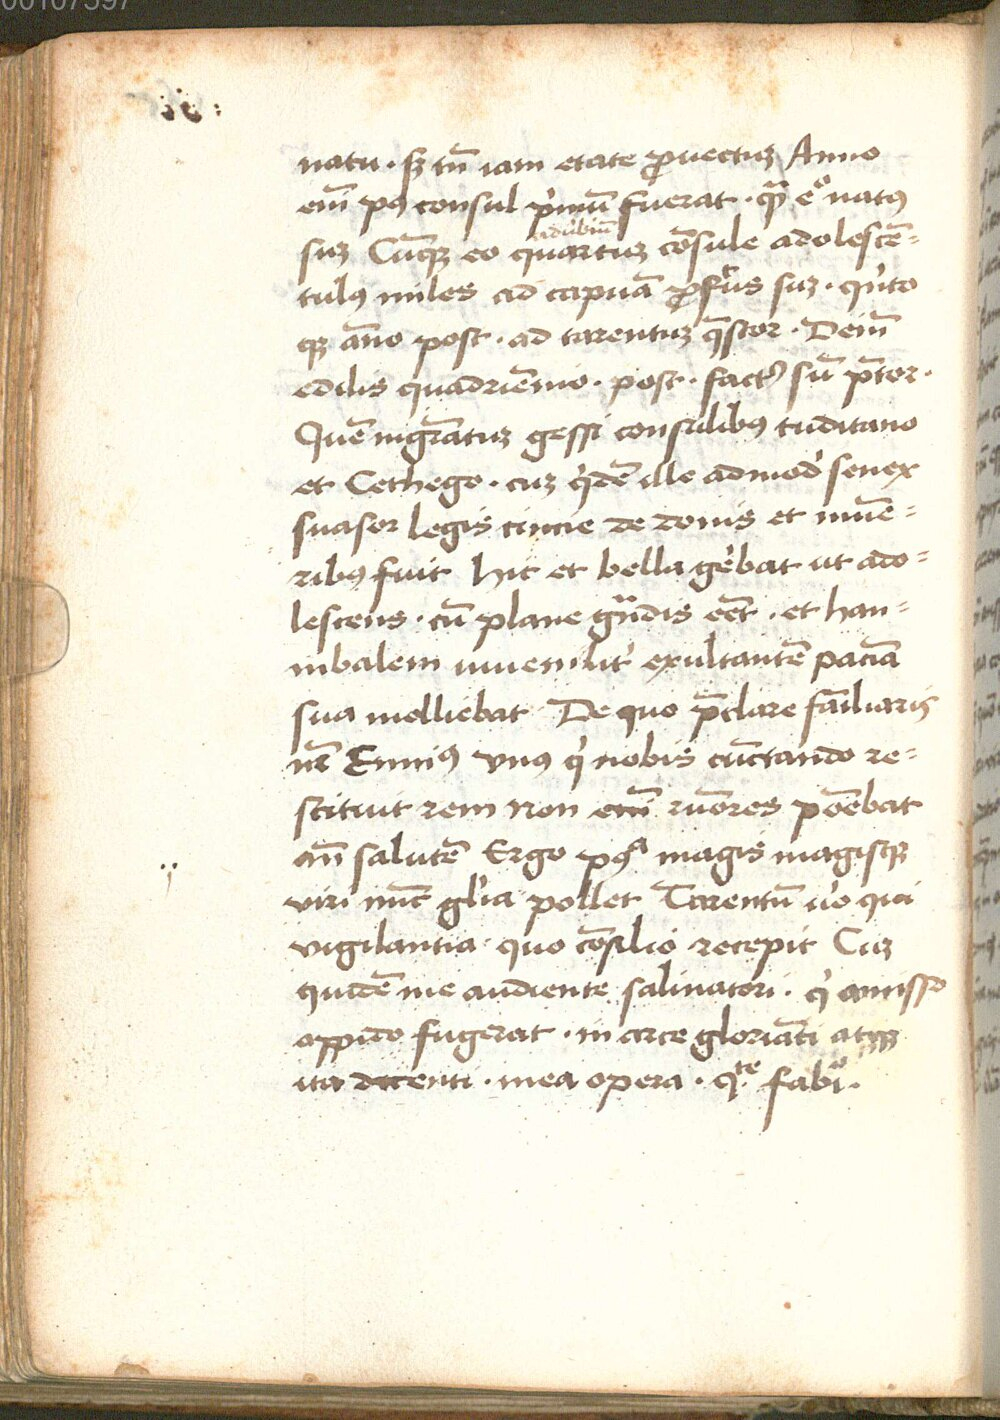 00107597
natu · sꝫ tn̄ iam etate ꝓuectuꝫ Anno
eni̅ pꝰ consul pͥmū fuerat · qꝫ̄ eͦ natꝰ
suꝫ Cūqꝫ eo quartuꝫ cōsule adolescē-
tulꝰ miles ad capuā ꝓfc̄us suꝫ · qͥnto
qꝫ āno post · ad tarentuꝫ qͣstor · Dein̄
edilis quadriēnio · post · factꝰ sū p̄tor ·
Quē mgr̄atuꝫ gessi consulibꝰ tuditano
et Cethego · cuꝫ qͥdē ille admod' senex
suasor legis cincie de donis et mūe-
ribꝰ fuit hic et bella ge'bat ut ado-
lescens · cū plane gͣndis eēt · et han-
nibalem iuuenilit' exultantē paciā
sua molliebat De quo p̄clare fāiliaris
nr̄ Enniꝰ vnꝰ qͥ nobis cūctando re-
stituit rem non eni̅ rūores pōebat
an̄ salutē Ergo pꝰqͣ magis magisqꝫ
viri nūc glīa pollet Tarentū u'o qui
vigilantia · quo cōsilio recepit Cuꝫ
quidē me audiente salinatori · qͥ amisso
oppido fugerat · in arce gloriāti atqꝫ
ita dicenti · mea opera · qͥ · te fabi ·